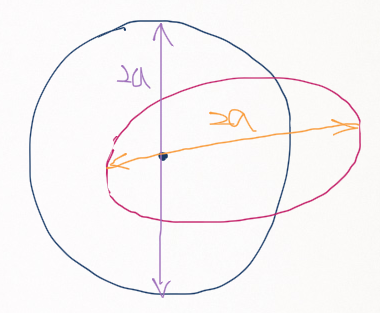 2a
2a